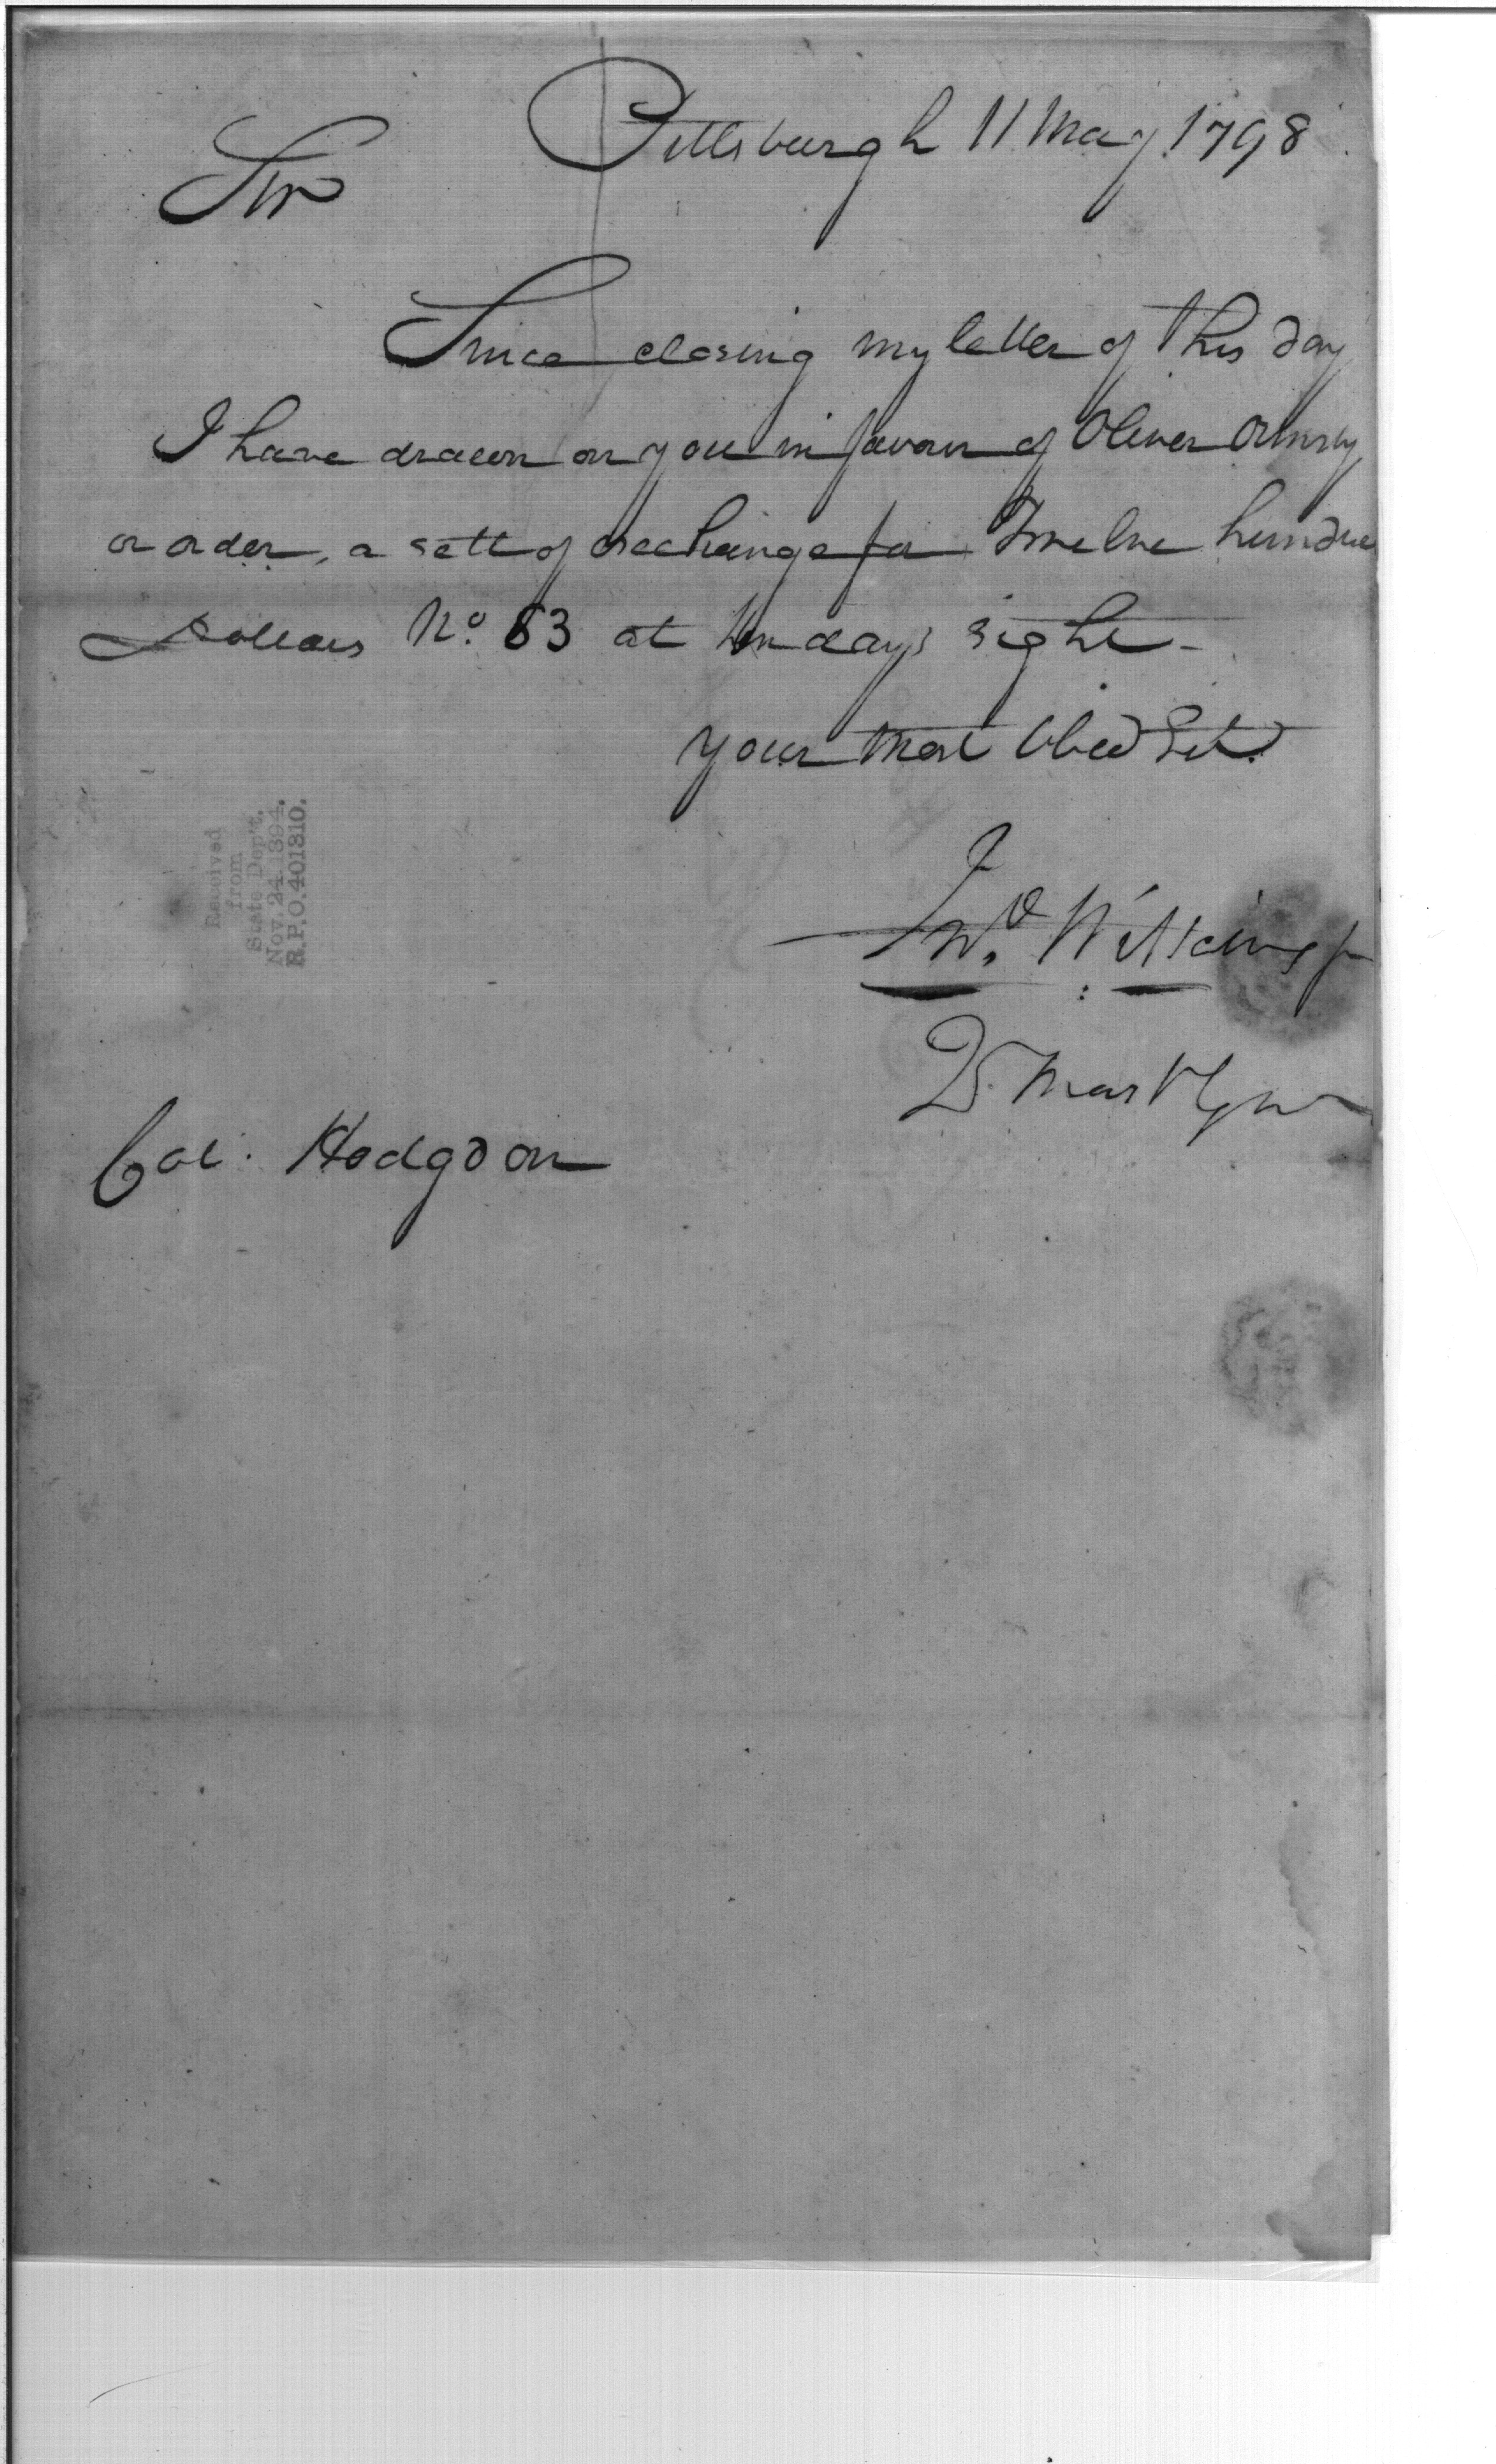 Pittsburgh 11 May 1798
Sir
Since closing my letter of this day
I have drawn on you in favour of Oliver Ormsby
or order, a sett of exchange for Twelve hundred
Dollars No. 83 at ten days sight -
your most Obed Set.
Jno. Wilkins jr
Qr Mastr Genr
Col. Hodgdon
Received
from
State Dep't.
Nov. 24. 1894.
R.P.O. 401310.